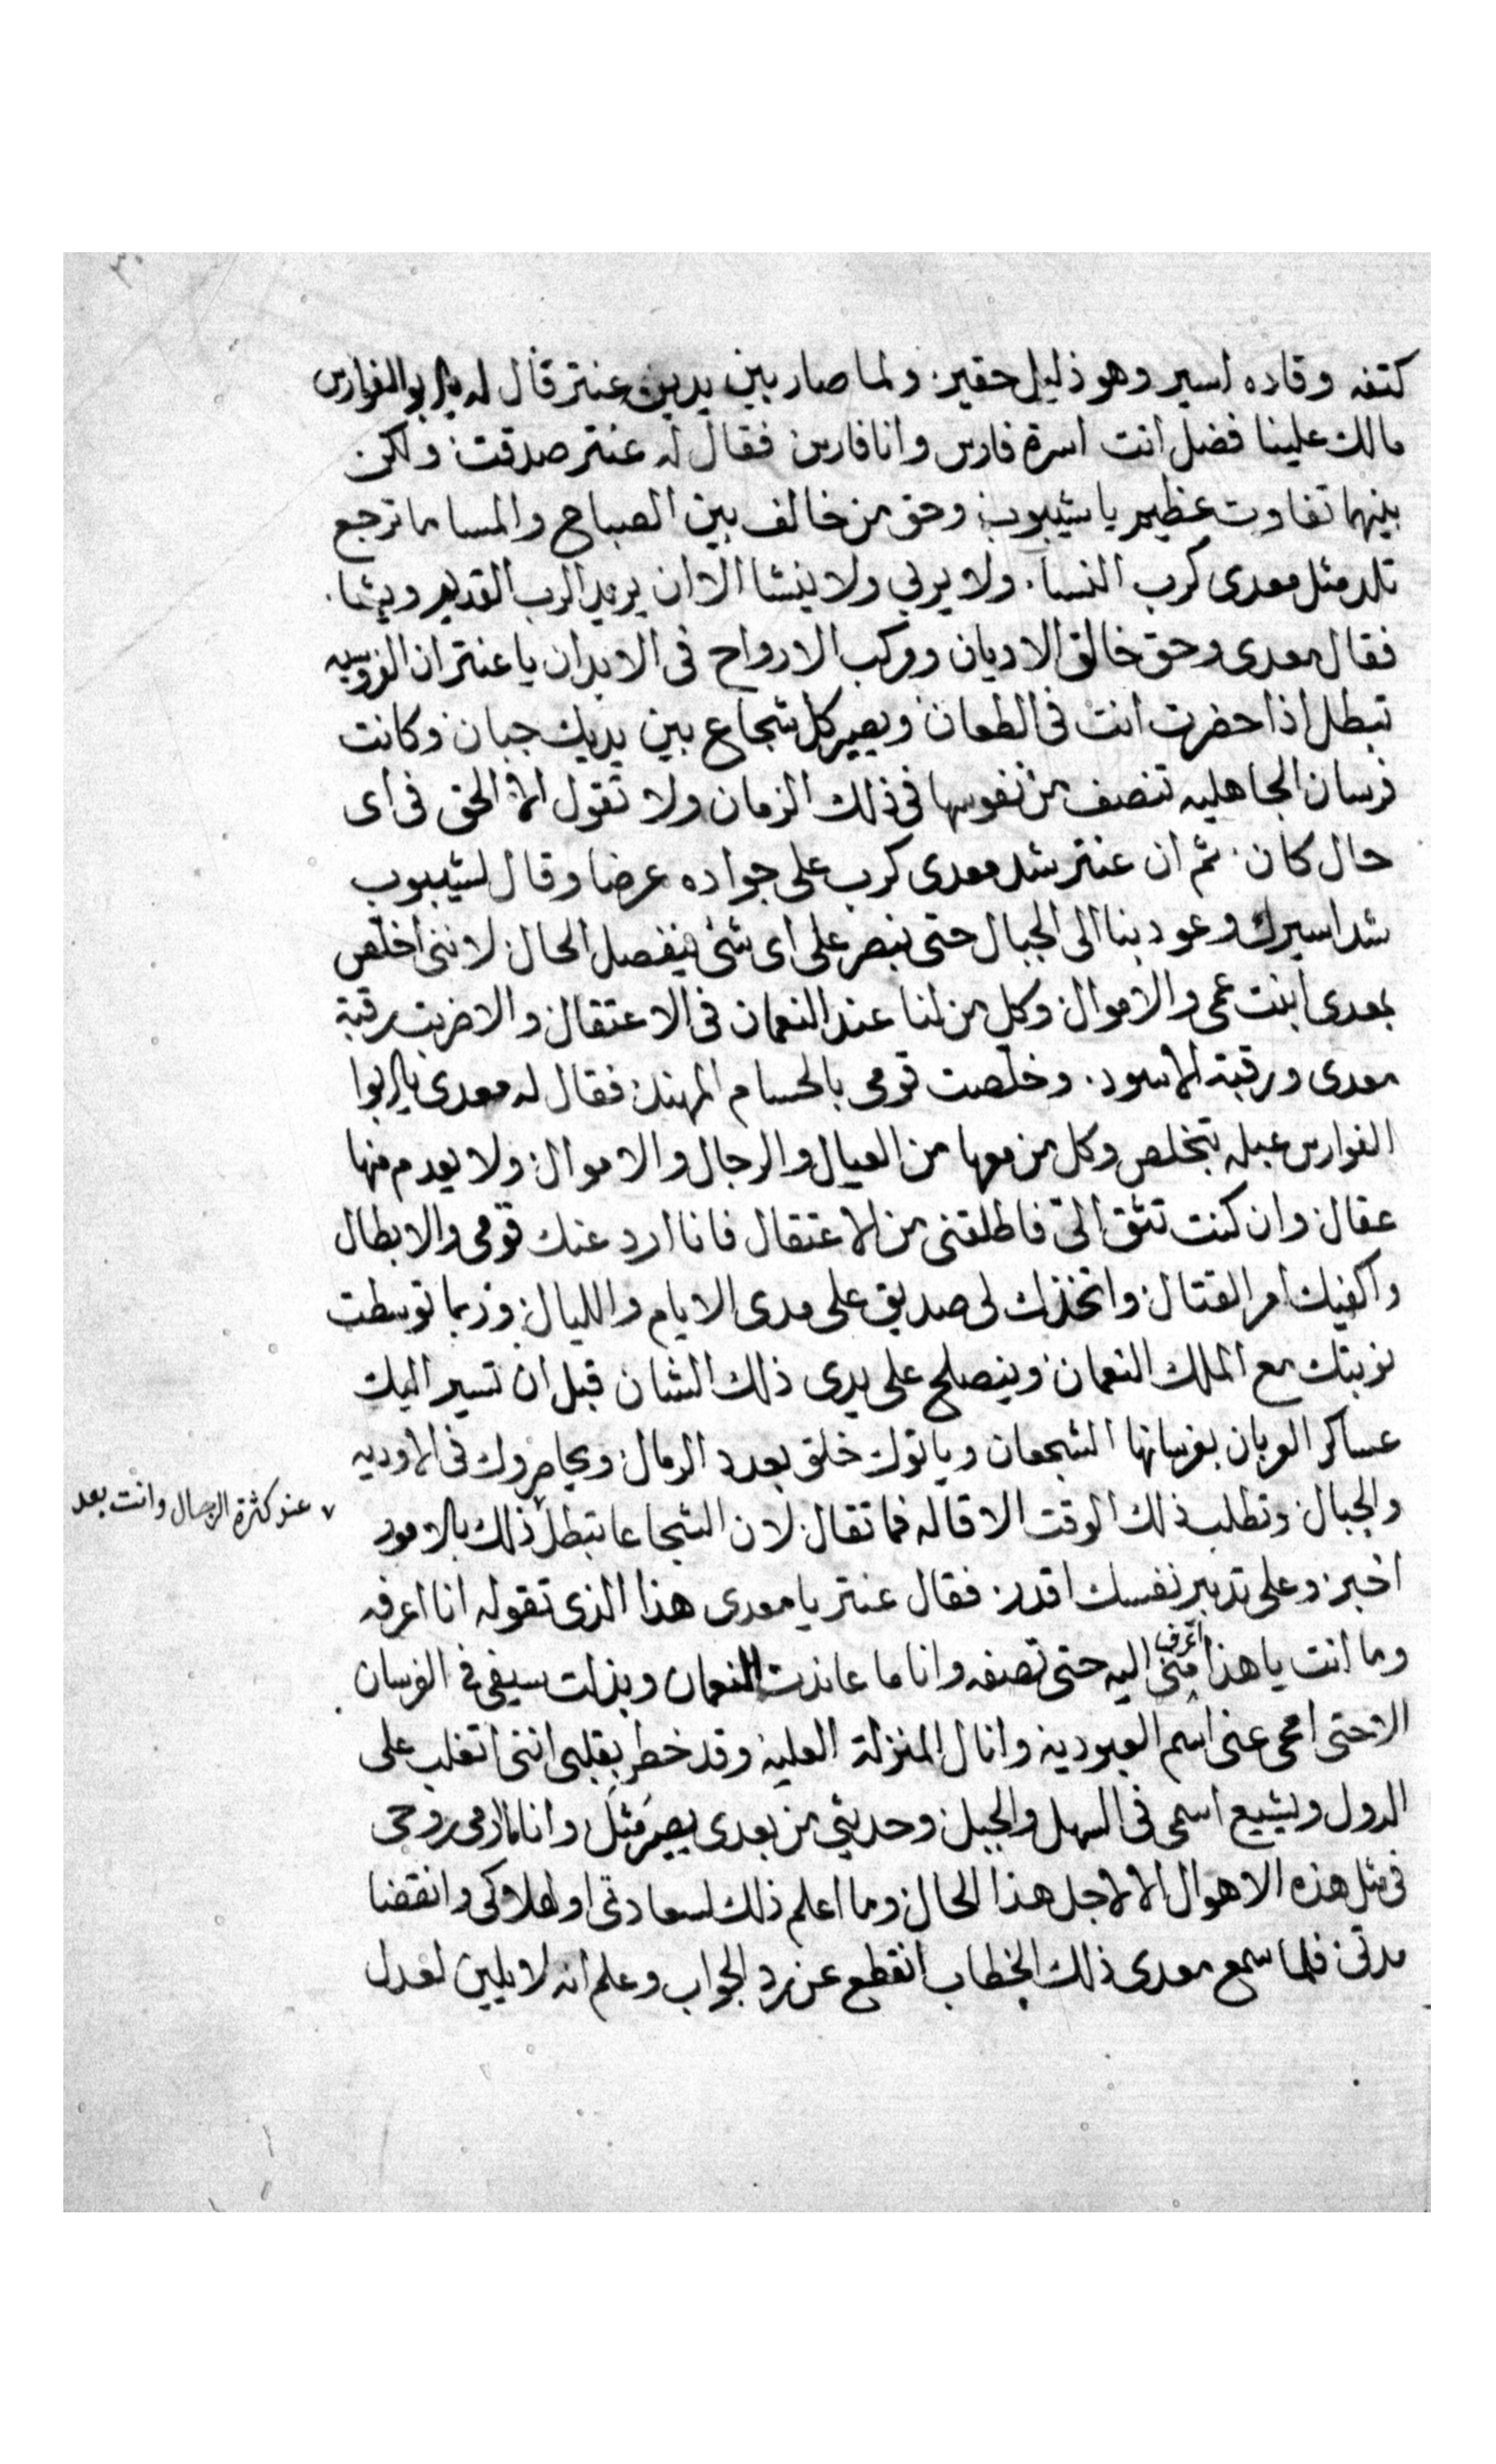 كتفه وقاده اسير وهو ذليل حقير. ولما صار بين يدين عنتر قال له يا ابو الفوارس
مالك علينا فضل انت اسرة فارس وانا فارس فقال له عنتر صدقت ولكن
بينهما تفاوت عظيم يا شيبوب وحق من خالف بين الصباح والمسا ما ترجع
تلد مثل معدى كرب النسا. ولا يربى ولا ينشا الا ان يريد الرب القديم ويشا.
فقال معدى وحق خالق الاديان ومركب الارواح فى الابدان يا عنتر ان الفروسيه
تبطل اذا حضرت انت فى الطعان ويصير كل شجاع بين يديك جبان وكانت
فرسان الجاهليه تنصف من نفوسها فى ذلك الزمان ولا تقول الا الحق فى اى
حال كان. ثم ان عنتر شد معدى كرب على جواده عرضا وقال لشيبوب
شد اسيرك وعود بنا الى الجبال حتى نبصر على اى شئ ينفصل الحال لاننى اخلص
بمعدى ابنت عمى والاموال وكل من لنا عند النعمان فى الاعتقال والا ضربت رقبة
معدى ورقبة الاسود. وخلصت قومى بالحسام المهند فقال له معدى يا ابوا
الفوارس عبله تتخلص وكل من معها من العيال والرجال والاموال ولا يعدم منها
عقال وان كنت تثق الىّ فاطلقنى من الاعتقال فانا ارد عنك قومى والابطال
واكفيك امر القتال واتخذك لى صديق على مدى الايام والليال وربما توسطت
نوبتك مع الملك النعمان وينصلح على يدى ذلك الشان قبل ان تسير اليك
عساكر العربان بفرسانها الشجعان وياتوك خلق بعدد الرمال ويحاصروك فى الاوديه
والجبال وتطلب ذلك الوقت الاقاله فما تقال لان الشجاعا تبطل ذلك بالامور
٧ عند كثرة الرجال وانت بعد
اخبر وعلى تدبير نفسك اقدر فقال عنتر يا معدى هذا الذى تقوله انا اعرفه
وما انت يا هذا اعرف منى اليه حتى تصفه وانا ما عاندت النعمان وبذلت سيفى فى الفرسان
الا حتى امحى عنى اسم العبوديه وانال المنزلة العليه وقد خطر بقلبى اننى اتغلب على
الدول ويشيع اسمى فى السهل والجبل وحديثى من بعدى يصير مثل وانا ما ارمى روحى
فى مثل هذه الاهوال الا لاجل هذا الحال وما اعلم ذلك لسعادتى او لهلاكى وانقضا
مدتى فلما سمع معدى ذلك الخطاب انقطع عن رد الجواب وعلم انه لا يلين لعدل